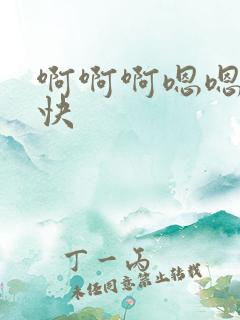 啊啊啊嗯嗯
快
丁一丙
未经同意禁止转载